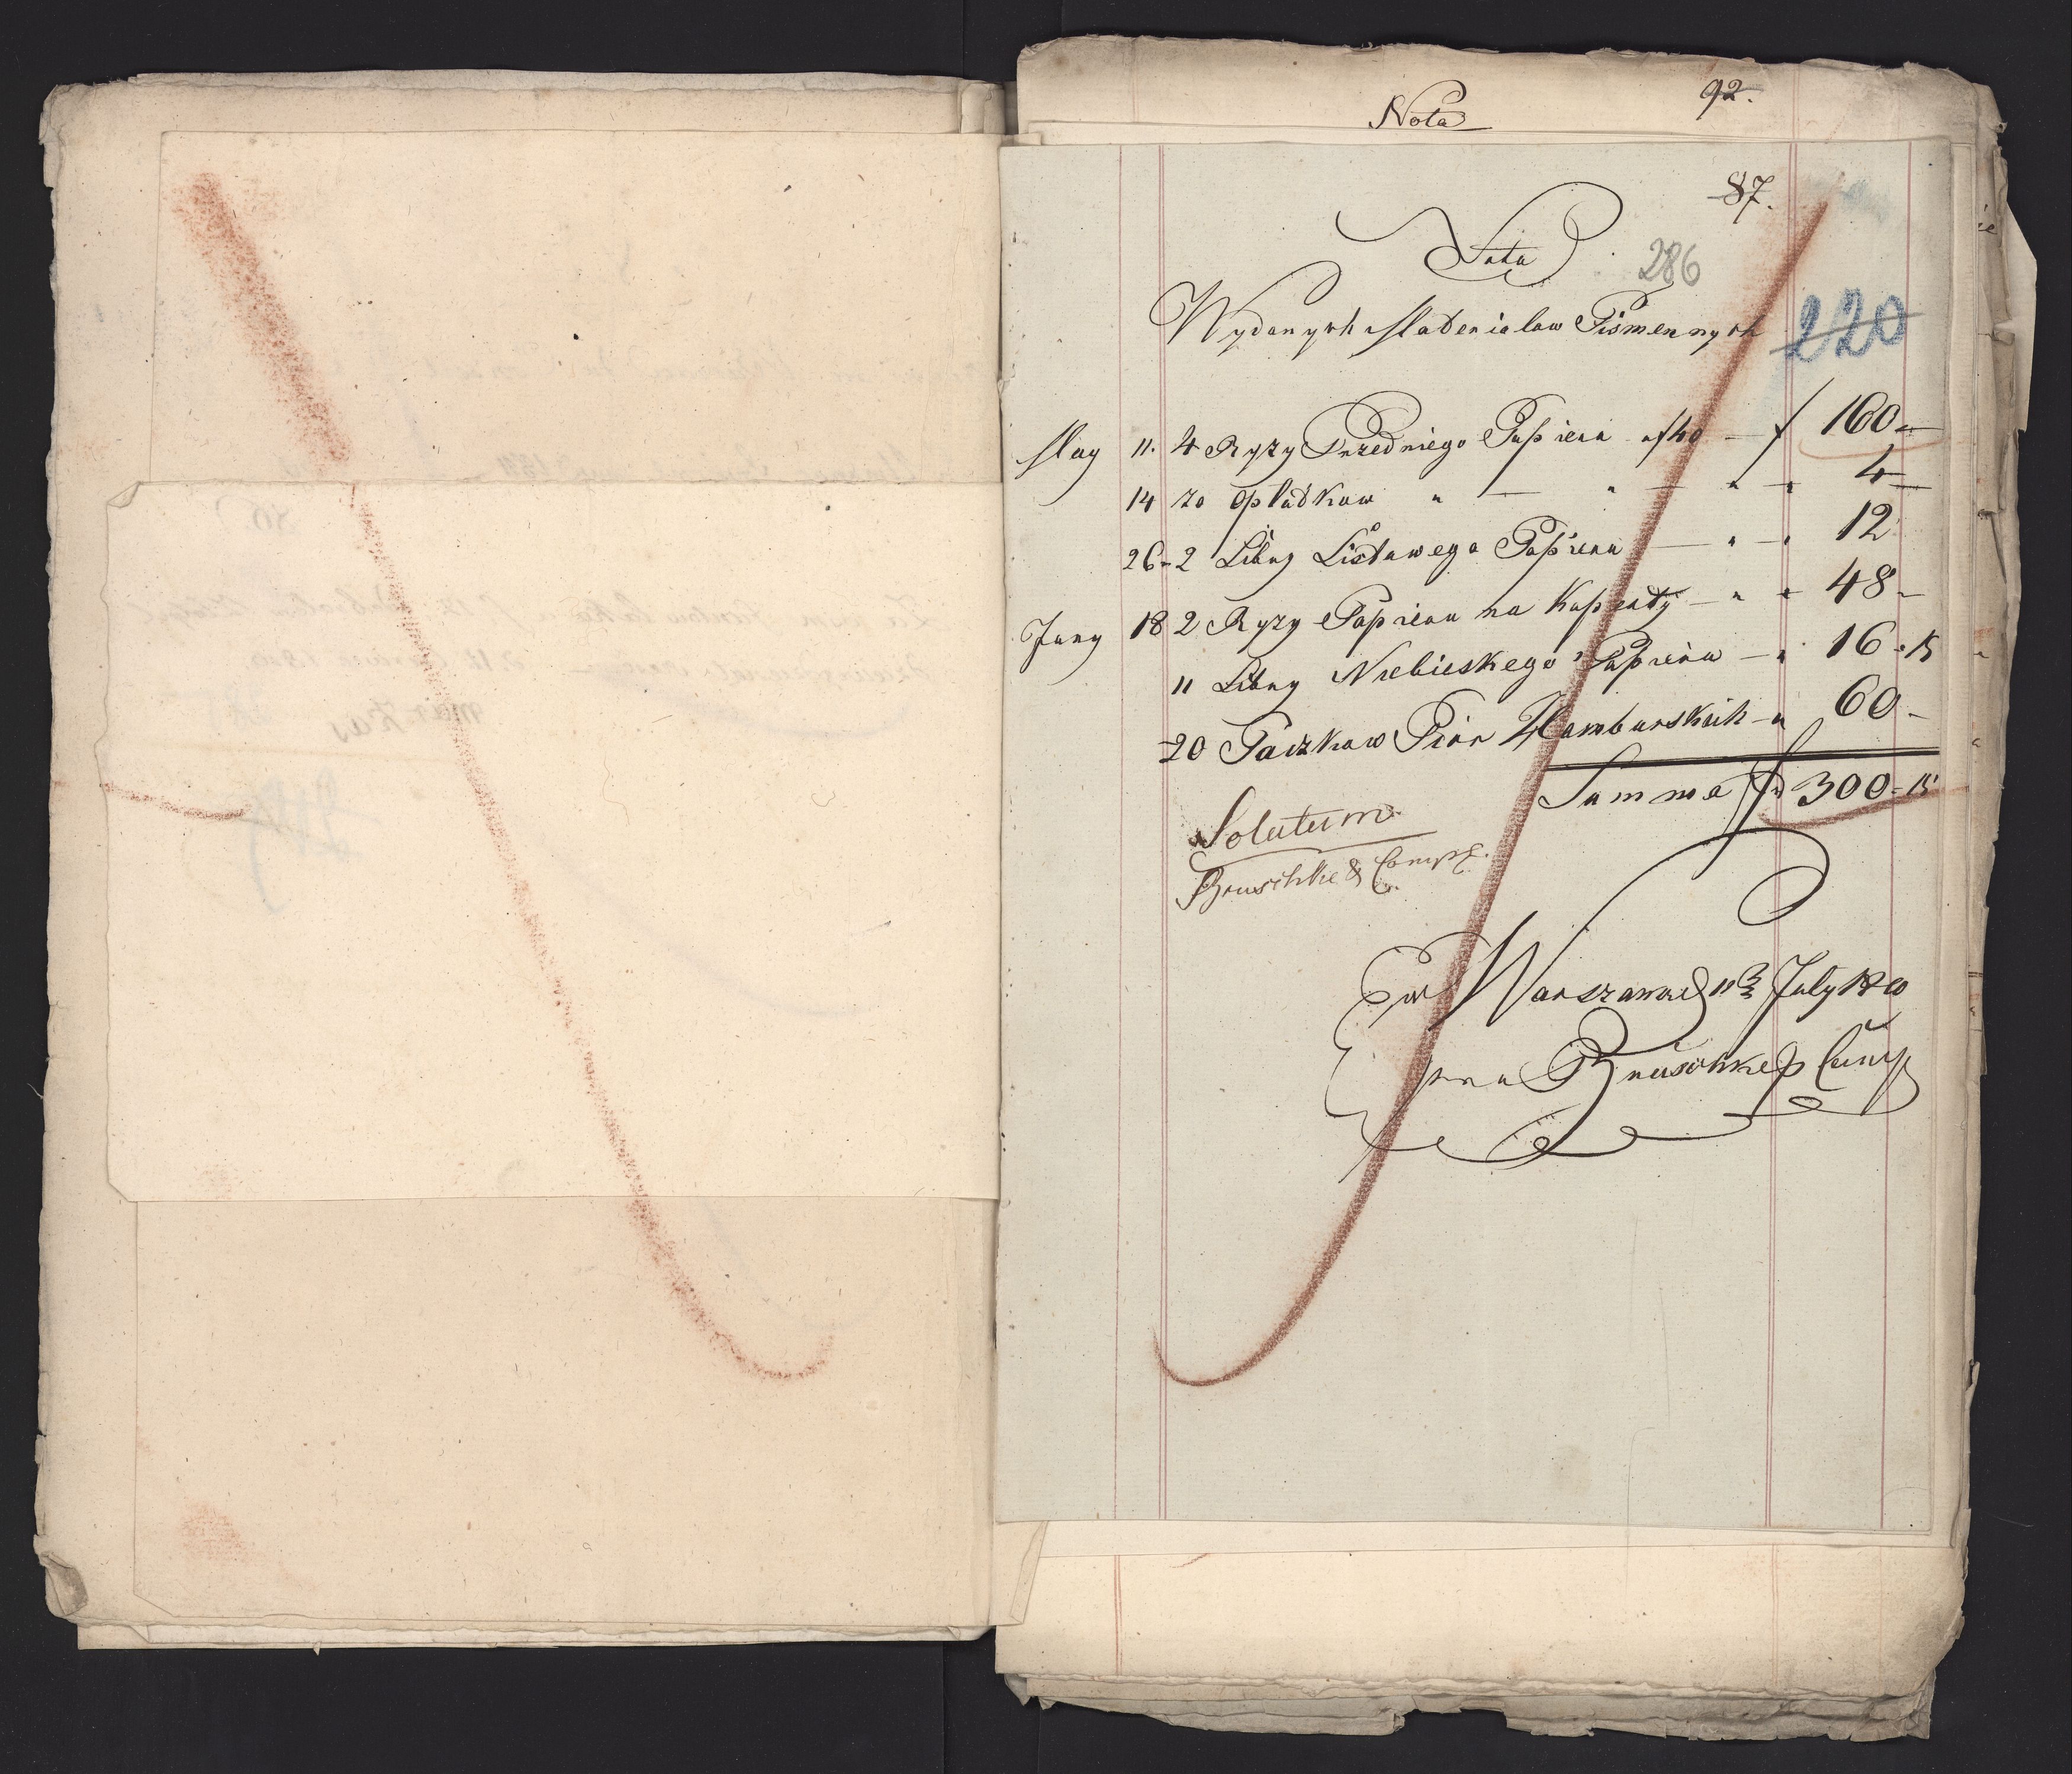 Nota
92.
87.
Nota
286
Wydanych Materialow Pismennych
220
May 11. 4 Ryzy Przedniego Papieru a f 40 — f 160 —
14 20 Opladkow " — " — " — " 4 —
26 - 2 Libry Listowego Papieru — " — " 12
Juny 18 2 Ryzy Papieru na Kuperty — " " 48 -
11 Libry Niebieskego Papieru — " 16 . 15
20 Paczkow Piór Hamburskich — " 60 -
Summa f 300 - 15
Solutum
Bruschke & Comp.
w Warszawie d 11 July 1810
Bruschke & Comp